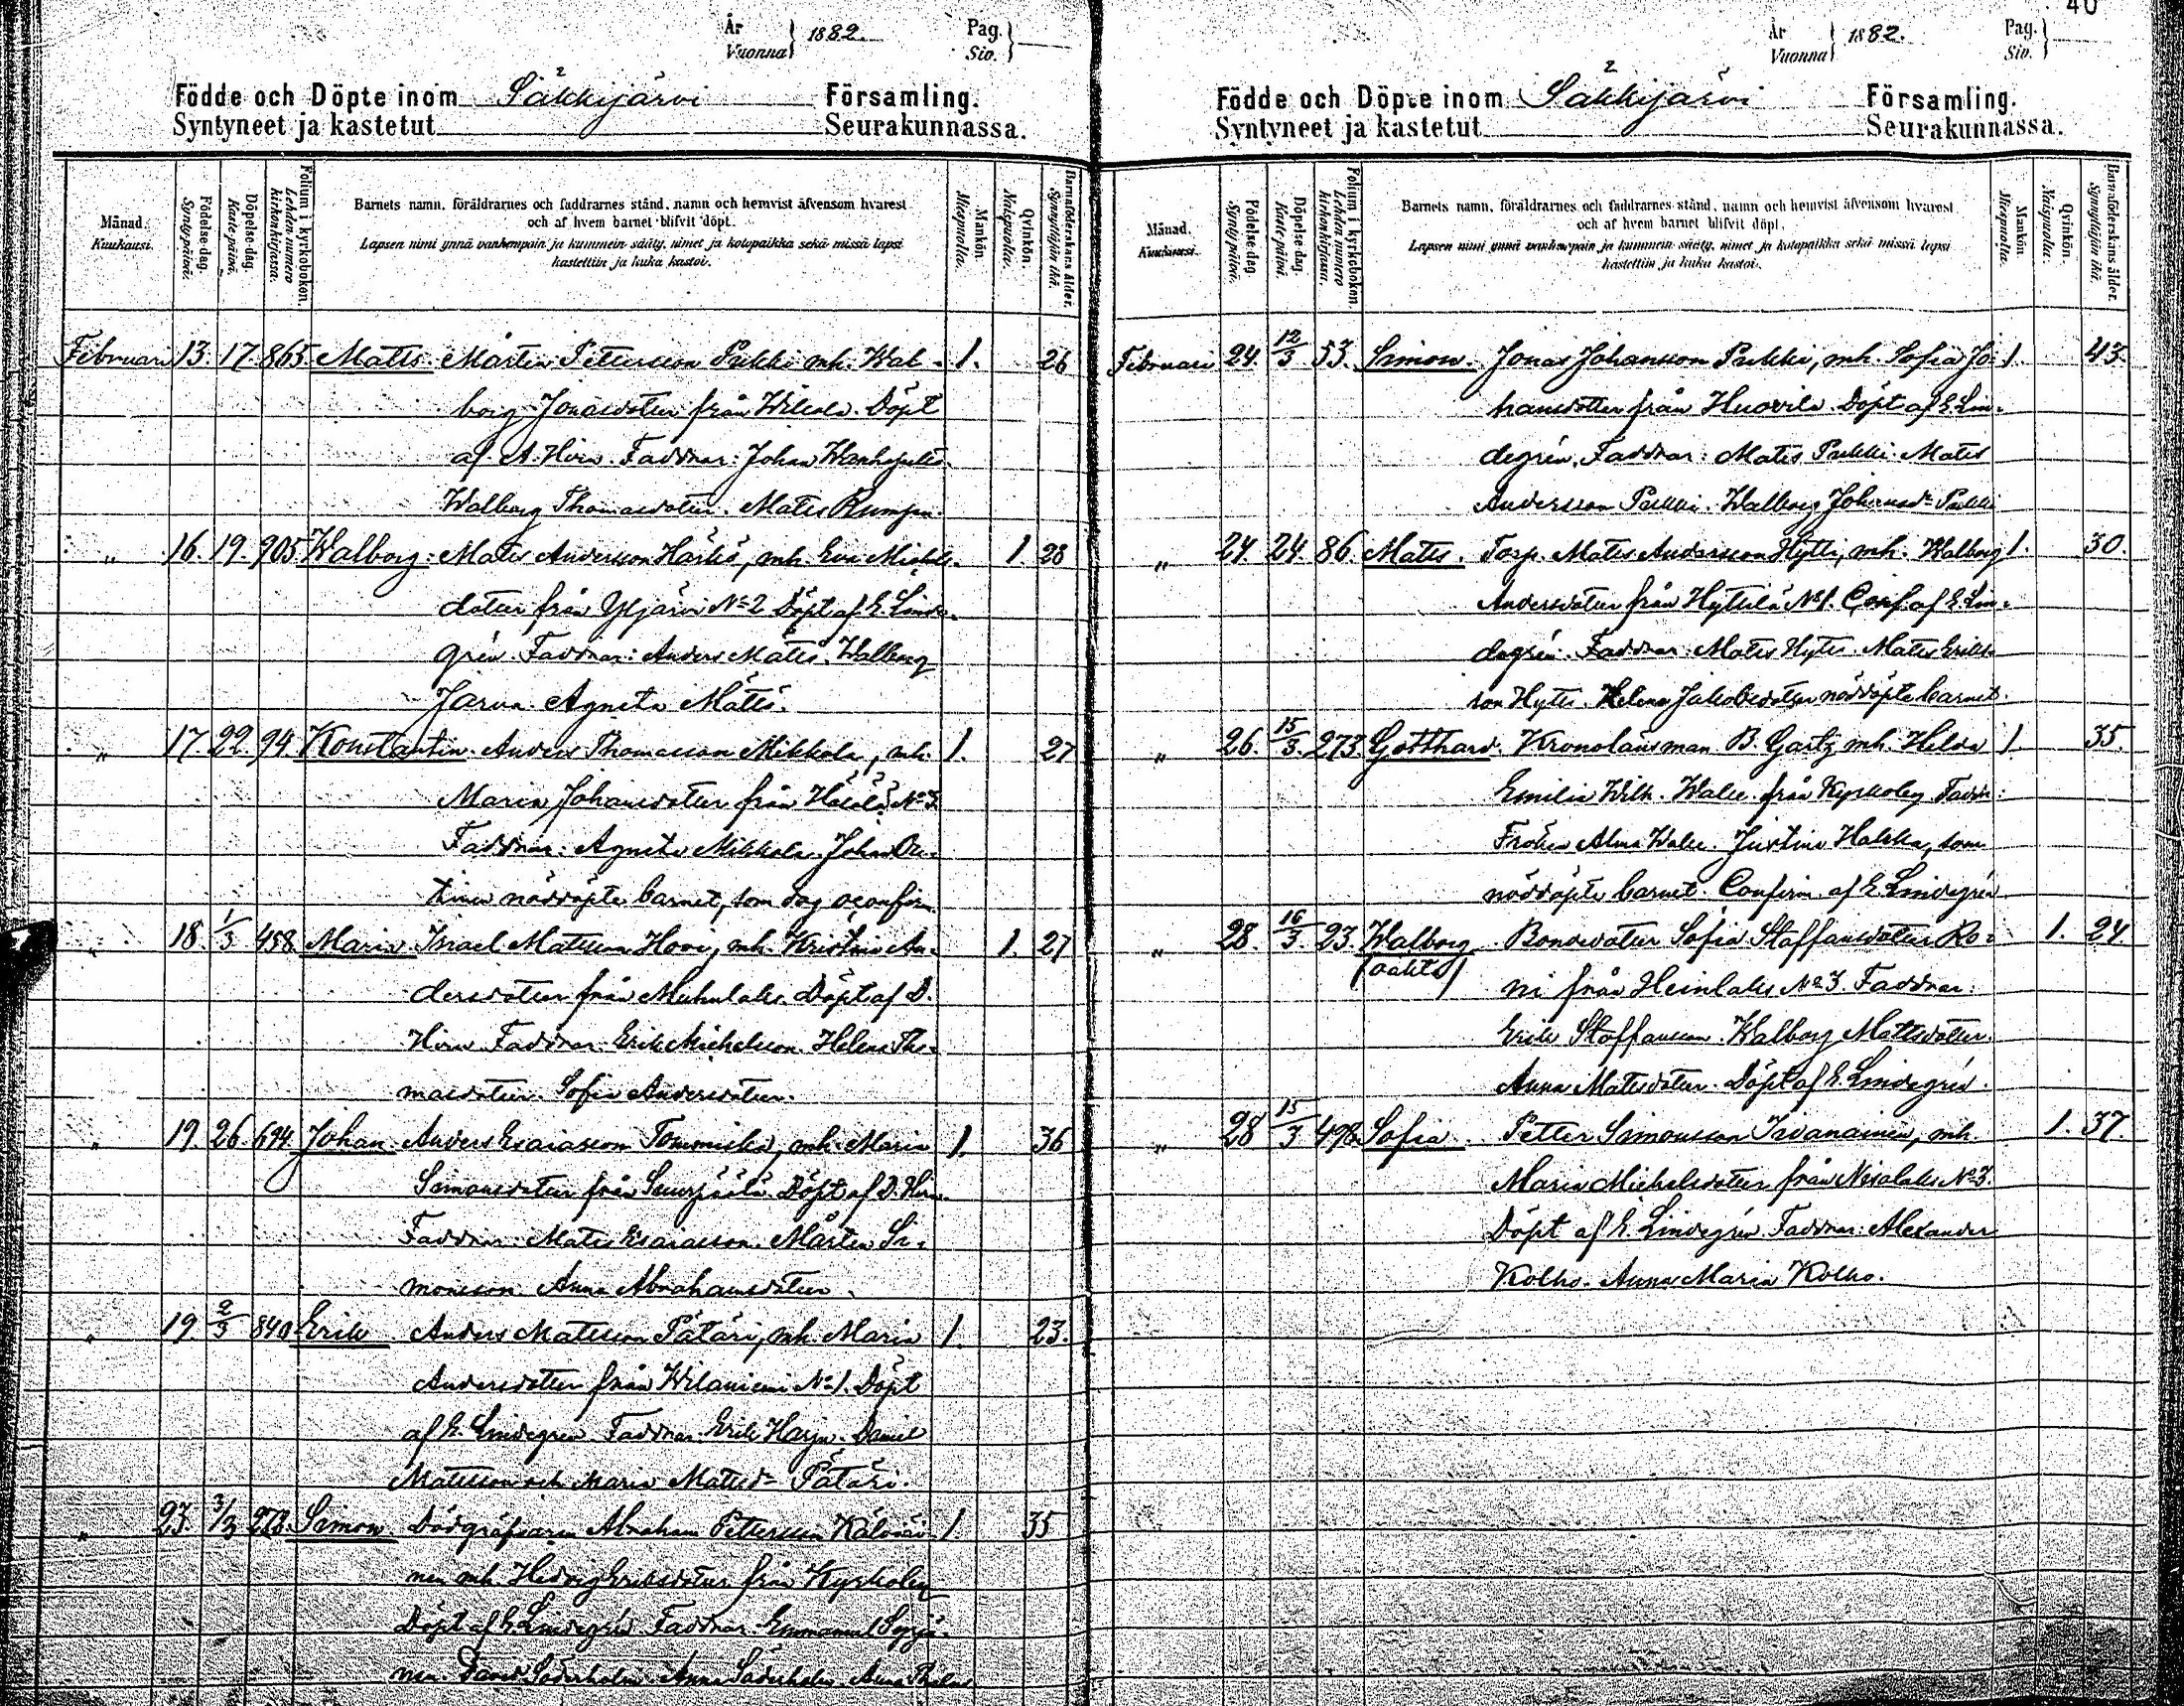 År
Vuonna } 1882.
Pag.
Siv. }
Födde och Döpte inom Säkkijärvi Församling.
Syntyneet ja kastetut Seurakunnassa.
Månad.
Kuukausi.
Födelse-dag.
Syntypäivä.
Döpelse-dag.
Kaste päivä.
Folium i kyrkobokon.
Lehden numero
kirkonkirjassa.
Barnets namn, föräldrarnes och faddrarnes stånd, namn och hemvist äfvensom hvarest
och af hvem barnet blifvit döpt.
Lapsen nimi ynnä vanhempain ja kummein sääty, nimet ja kotopaikka sekä missä lapsi
kastettiin ja kuka kastoi.
Mankön.
Miespuolia.
Qvinkön.
Naispuolia.
Barnaföderskans ålder.
Synnyttäjän ikä.
Februari 13. 17. 865 Matts Mårten Pettersson Pukki mh. Wal- 1. 26
borg Jonasdotter från Wilkala. Döpt
af A. Hirn. Faddrar: Johan
Walborg Thomasdotter. Matts Rumpu.
" 16. 19. 905 Walborg. Matts Andersson Härkö, mh. Eva Michels- 1. 28
dotter från Yljärvi No 2 Döpt af E. Linde-
grén. Faddrar: Anders Mättö. Walborg
Jarva. Agneta Mättö.
" 17. 22. 94. Konstantin. Anders Thomasson Mikkola, mh. 1. 27
Maria Johansdotter från No 3
Faddrar: Agneta Mikkola. Johan
nöddöpte barnet, som dog oconfirm.
" 18. 1/3 458 Maria Israel Mattsson Hovi, mh. Kristina An- 1. 27
dersdotter från Muhulaks. Döpt af D.
Hirn. Faddrar: Erik Michelsson. Helena Tho-
masdotter. Sofia Andersdotter.
" 19. 26. 694. Johan Anders Esaiasson Tommiska, mh. Maria 1. 36
Simonsdotter från Suurpäälä. Döpt af D. Hirn.
Faddrar: Matts Esaiasson. Mårten Si-
monsson. Anna Abrahamsdotter.
" 19 2/3 840 Erik Anders Mattsson Pätäri, mh. Maria 1. 23.
Andersdotter från Wilaniemi No 1. Döpt
af E. Lindegrén. Faddrar: Erik Harju. Daniel
Mattsson och Maria Mattsd= Pätäri.
" 23. 3/3 273. Simon Dödgräfvaren Abraham Pettersson Käläväi- 1. 35
nen mh. Hedvig Eriksdotter från Kyrkoby
Döpt af E. Lindegrén Faddrar: Emmanuel
nen. David Söderholm. Anna Söderholm. Anna
40
År
Vuonna } 1882.
Pag.
Siv. }
Födde och Döpte inom Säkkijärvi Församling.
Syntyneet ja kastetut Seurakunnassa.
Månad.
Kuukausi.
Födelse dag.
Synty päivä.
Döpelse dag.
Kaste päivä.
Folium i kyrkobokon.
Lehden numero
kirkonkirjassa.
Barnets namn, föräldrarnes och faddrarnes stånd, namn och hemvist äfvensom hvarest
och af hvem barnet blifvit döpt.
Lapsen nimi ynnä vanhempain ja kummein sääty, nimet ja kotopaikka sekä missä lapsi
kastettiin ja kuka kastoi.
Mankön
Miespuolia.
Qvinkön.
Naispuolia.
Barnaföderskans ålder.
Synnyttäjän ikä.
Februari 24. 12/3 53. Simon. Jonas Johansson Pukki, mh. Sofia Jo- 1. 43.
hansdotter från Huovila. Döpt af E. Lin-
degrén. Faddrar: Matts Pukki. Matts
Andersson Pukki. Walborg Johansd= Pukki
" 24. 24. 86. Matts. Torp. Matts Andersson Hytti, mh. Walborg 1. 30.
Andersdotter från Hyttilä No 1. Conf. af E. Lin-
degrén. Faddrar: Matts Hytti. Matts Eriks-
son Hytti. Helena Jakobsdotter nöddöpte barnet.
" 26. 15/3. 273. Gotthard. Kronolänsman B. Gartz mh. Hilda 1 35.
Emilia Wilh. Walle från Kyrkoby. Faddr:
Fröken Alma Walle. Justina Hakka, som
nöddöpte barnet. Confirm af E. Lindegrén
" 28. 16/3. 23. Walborg Bondedotter Sofia Staffansdotter Ro- 1. 24
(oäkta) ni från Heinlaks No 3. Faddrar:
Erik Staffansson. Walborg Mattsdotter.
Anna Mattsdotter. Döpt af E. Lindegrén.
" 28 15/3 498 Sofia Petter Simonsson Ivanainen, mh. 1. 37.
Maria Michelsdotter från Nisalaks No 3.
Döpt af E. Lindegrén. Faddrar: Alexander
Kolho. Anna Maria Kolho.